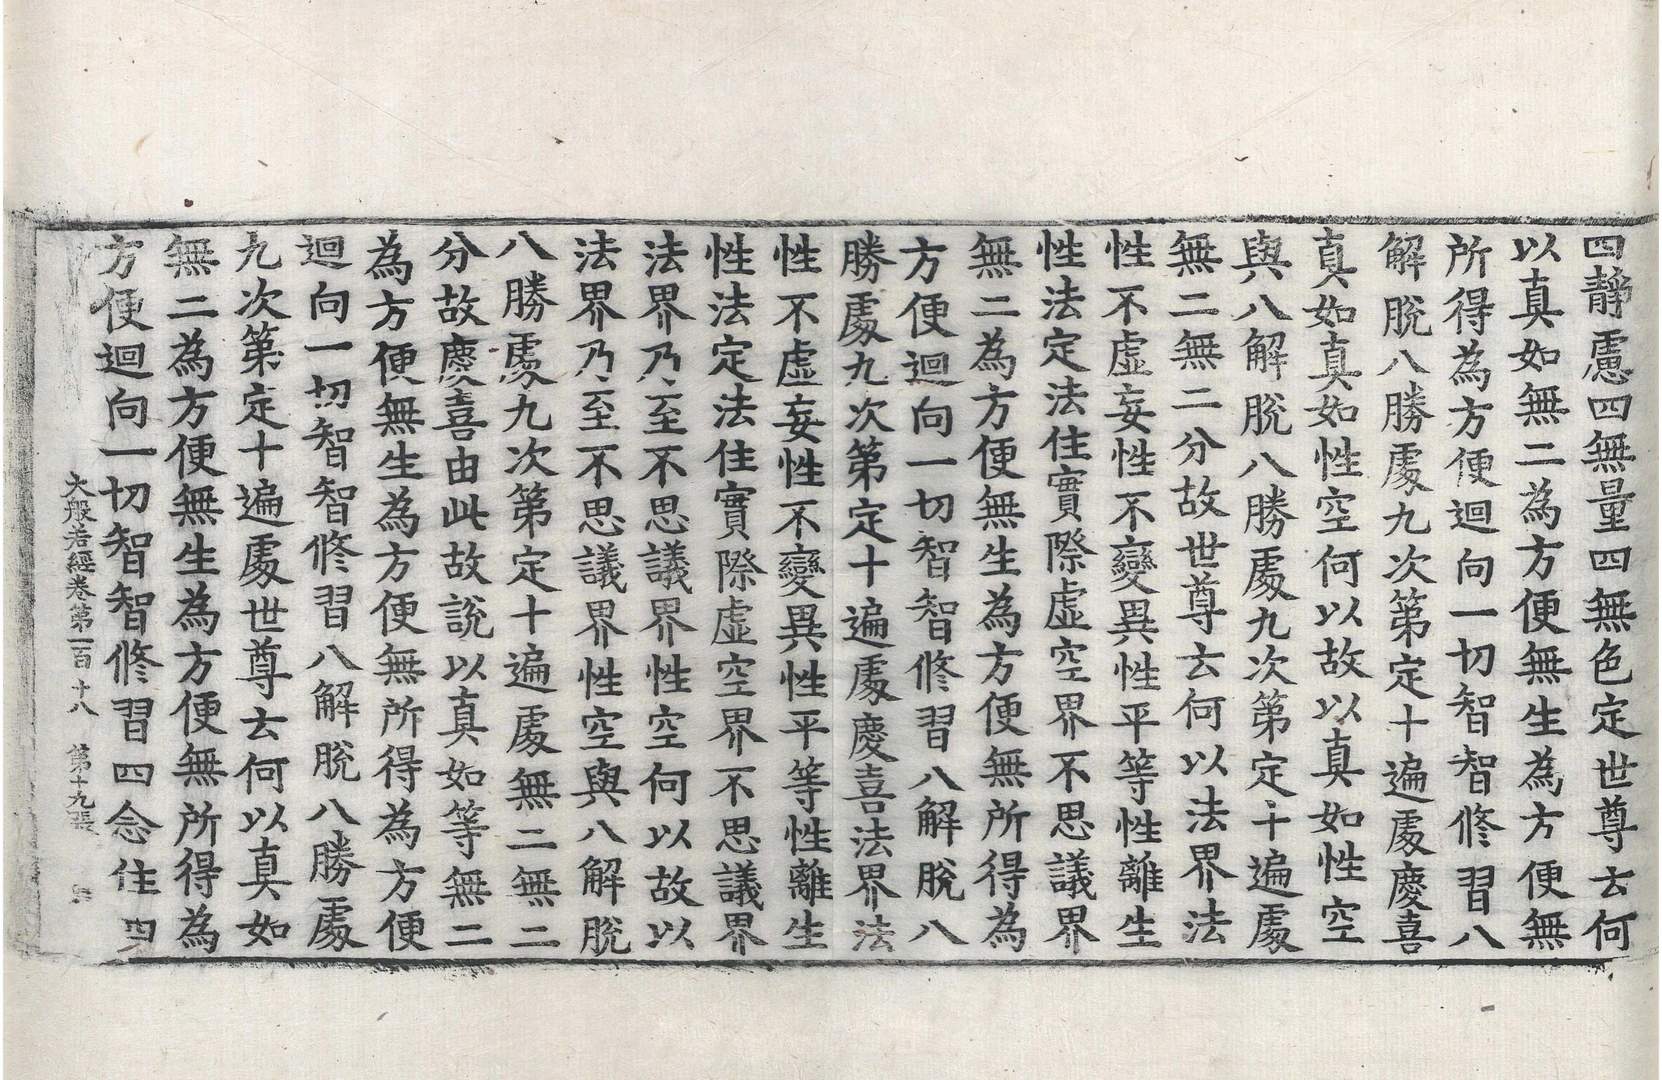 四靜慮四無量四無色定世尊云何
以真如無二為方便無生為方便無
所得為方便迴向一切智智修習八
解脫八勝處九次第定十遍處慶喜
真如真如性空何以故以真如性空
與八解脫八勝處九次第定十遍處
無二無二分故世尊云何以法界法
性不虛妄性不變異性平等性離生
性法定法住實際虛空界不思議界
無二為方便無生為方便無所得為
方便迴向一切智智修習八解脫八
勝處九次第定十遍處慶喜法界法
性不虛妄性不變異性平等性離生
性法定法住實際虛空界不思議界
法界乃至不思議界性空何以故以
法界乃至不思議界性空與八解脫
八勝處九次第定十遍處無二無二
分故慶喜由此故說以真如等無二
為方便無生為方便無所得為方便
迴向一切智智修習八解脫八勝處
九次第定十遍處世尊云何以真如
無二為方便無生為方便無所得為
方便迴向一切智智修習四念住四
大般若經卷第一百十八 第十九張